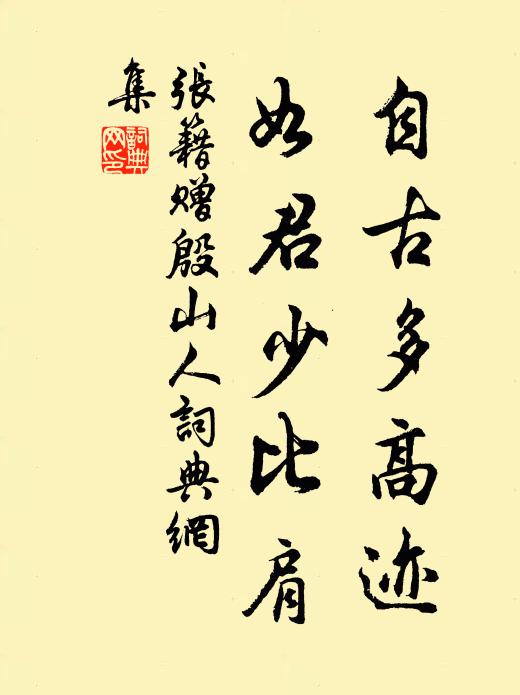 自古多高迹
如君少比肩
張籍贈殷山人詞典網
集
詞典網印